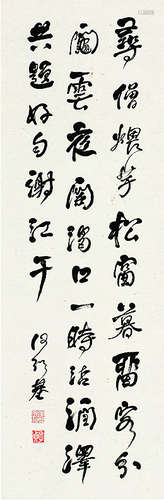 尋僧煨芋松窗暮留客分
團雲夜闌渴口一時沾潤澤
共題好句謝江干
何紹基